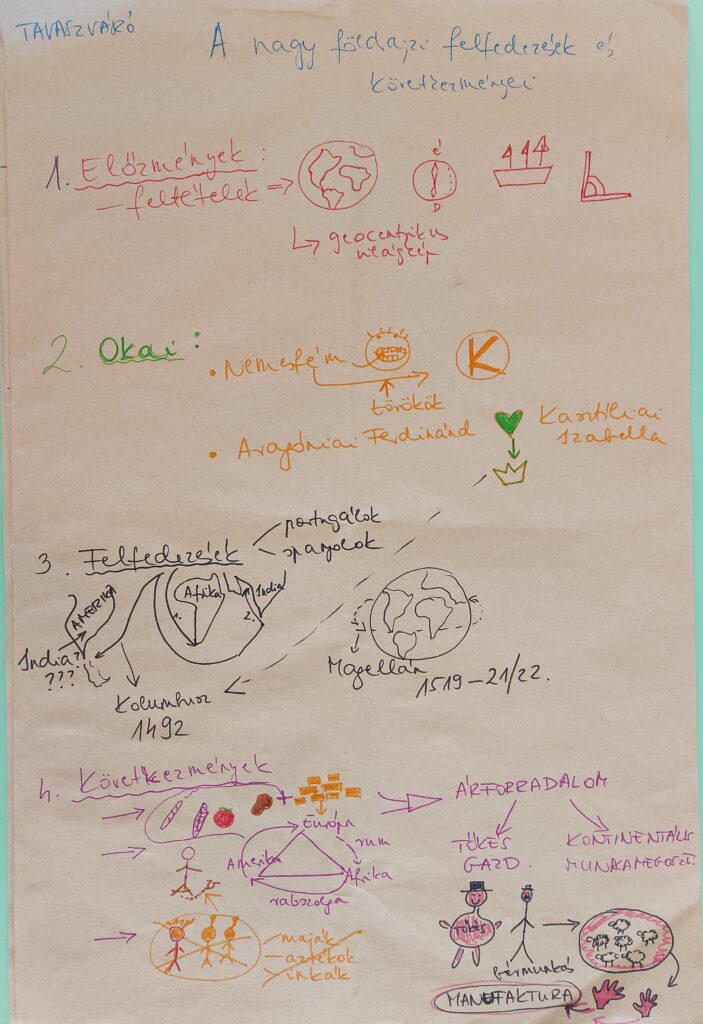 TAVASZVÁRÓ
A nagy földrajzi felfedezések és
következményei
1. Előzmények :
— feltételek =>
É
D
geocentrikus
világkép
2. Okai :
• Nemesfém
K
törökök
• Aragóniai Ferdinánd
Kasztíliai
Izabella
3. Felfedezések
portugálok
spanyolok
AMERIKA
1.
Afrika
2.
India
India?!
???
Kolumbusz
1492
Magellán
1519 – 21/22.
4. Következmények
+
ÁRFORRADALOM
Európa
rum
Amerika
Afrika
rabszolga
TŐKÉS
GAZD.
KONTINENTÁLIS
MUNKAMEGOSZT.
maják
aztékok
inkák
TŐKÉS
bérmunkás
MANUFAKTURA